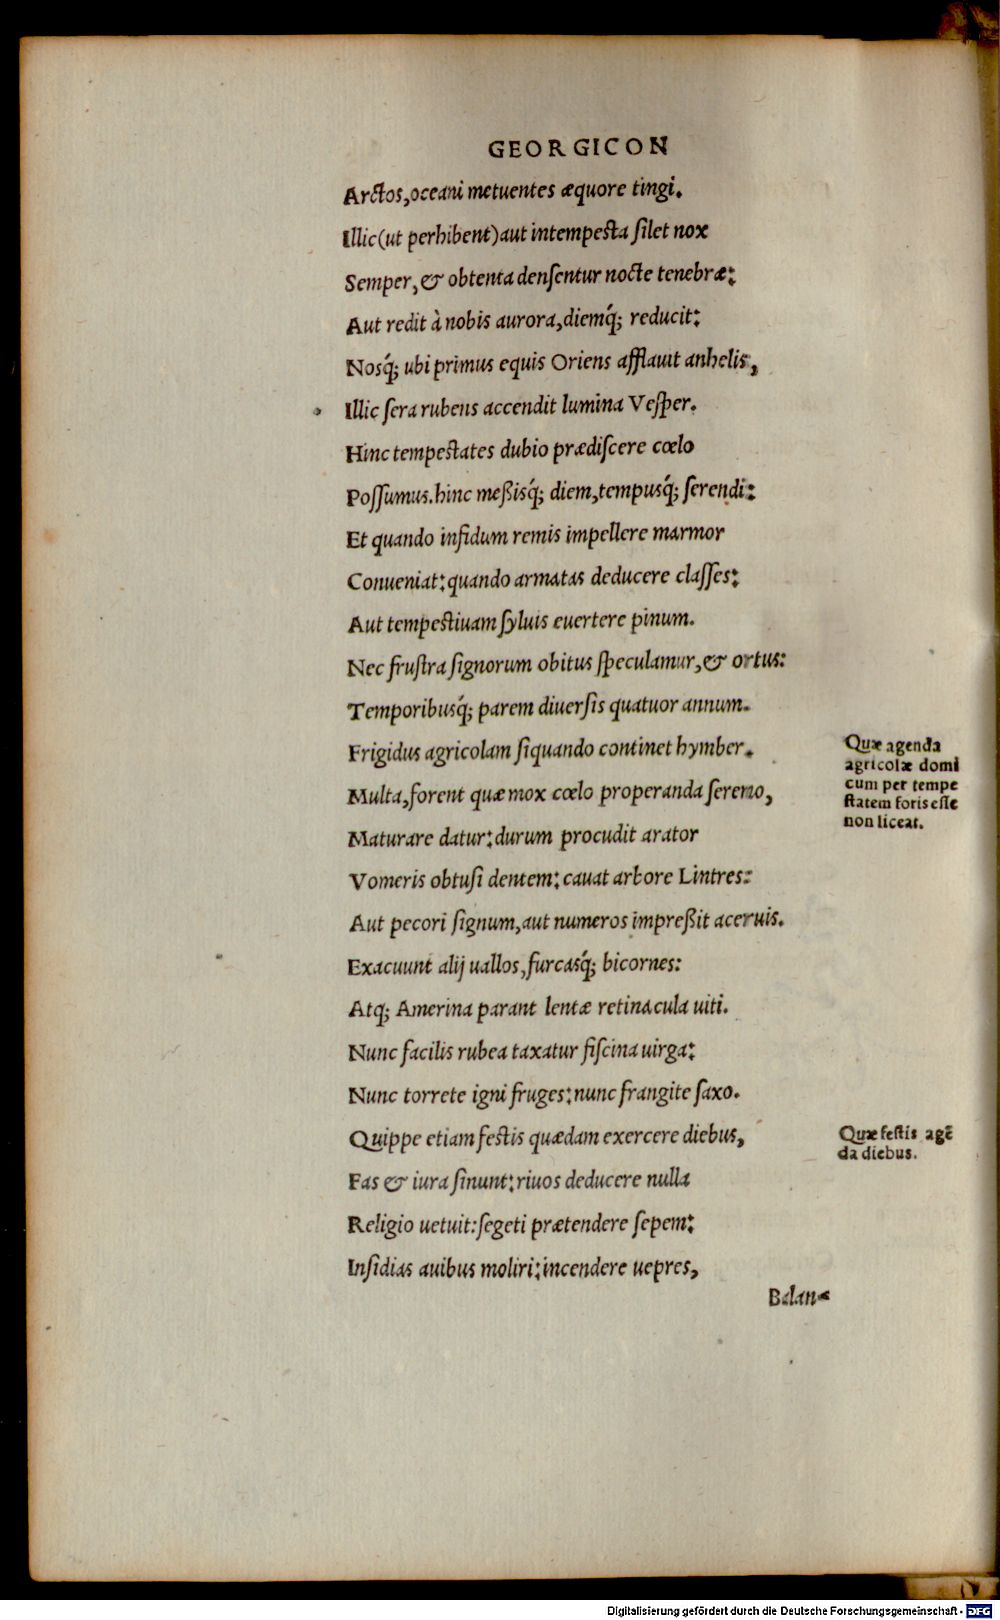 GEORGICON
Arctos, oceani metuentes æquore tingi.
Illic (ut perhibent) aut intempesta ſilet nox
Semper, & obtenta denſentur nocte tenebræ:
Aut redit à nobis aurora, diemq́; reducit:
Nosq́; ubi primus equis Oriens afflauit anhelis,
Illic ſera rubens accendit lumina Veſper.
Hinc tempeſtates dubio prædiſcere cœlo
Poſſumus. hinc meßisq́; diem, tempusq́; ſerendi:
Et quando infidum remis impellere marmor
Conueniat: quando armatas deducere claſſes:
Aut tempeſtiuam ſyluis euertere pinum.
Nec fruſtra ſignorum obitus ſpeculamur, & ortus:
Temporibusq́; parem diuerſis quatuor annum.
Frigidus agricolam ſiquando continet hymber.
Multa, forent quæ mox cœlo properanda ſereno,
Maturare datur: durum procudit arator
Vomeris obtuſi dentem: cauat arbore Lintres:
Aut pecori ſignum, aut numeros impreßit aceruis.
Exacuunt alij uallos, furcasq́; bicornes:
Atq; Amerina parant lentæ retinacula uiti.
Nunc facilis rubea taxatur fiſcina uirga:
Nunc torrete igni fruges: nunc frangite ſaxo.
Quippe etiam feſtis quædam exercere diebus,
Fas & iura ſinunt: riuos deducere nulla
Religio uetuit: ſegeti prætendere ſepem:
Inſidias auibus moliri: incendere uepres,
Balan-
Quæ agenda
agricolæ domi
cum per tempe
ſtatem foris eſſe
non liceat.
Quæ feſtis agē
da diebus.
Digitalisierung gefördert durch die Deutsche Forschungsgemeinschaft - DFG